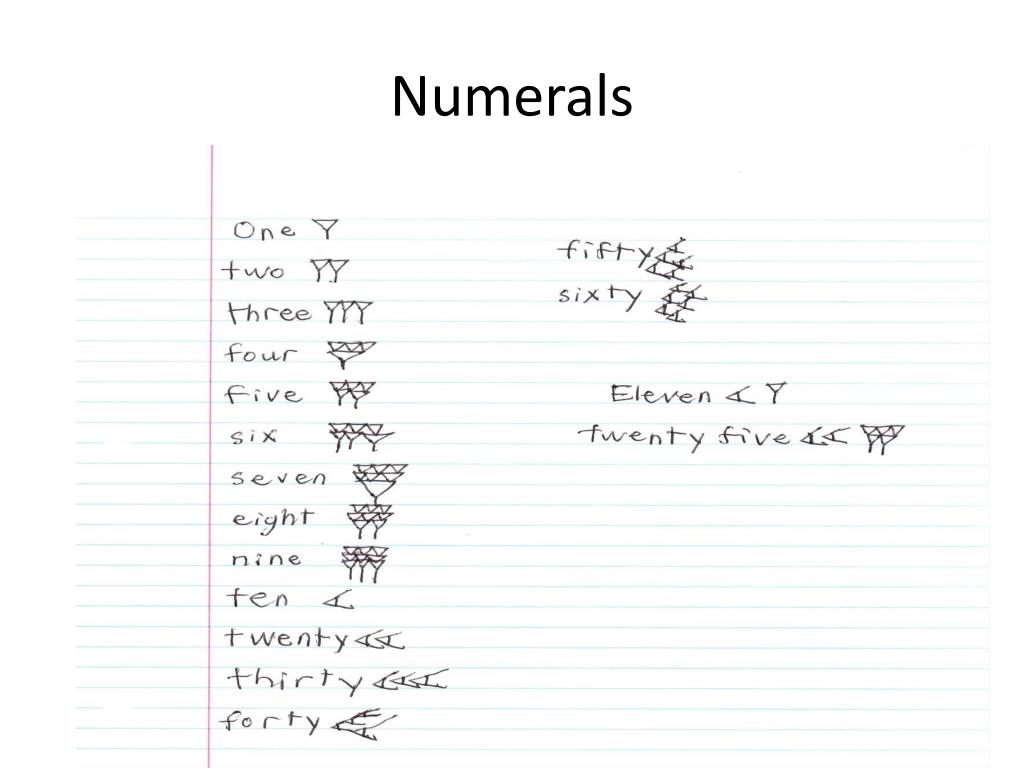 Numerals
One 𒁹
two 𒈫
three 𒐈
four 𒐼
five 𒐊
six 𒐋
seven 𒐌
eight 𒐍
nine 𒐎
ten 𒌋
twenty 𒎙
thirty 𒌍
forty 𒐏
fifty 𒐐
sixty 𒐑
Eleven 𒌋 𒁹
twenty five 𒎙 𒐊